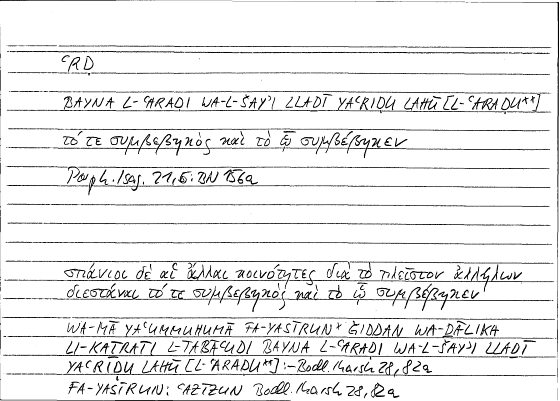 ʿRḌ
BAYNA L-ʿARAḌI WA-L-ŠAYʾI LLAḎĪ YAʿRIḌU LAHŪ [L-ʿARAḌU**]
τό τε συμβεβηκὸς καὶ τὸ ᾧ συμβέβηκεν
Porph. Isag. 21,5: BN 156a
σπάνιοι δὲ αἱ ἄλλαι κοινότητες διὰ τὸ πλεῖστον ἀλλήλων
διεστάναι τό τε συμβεβηκὸς καὶ τὸ ᾧ συμβέβηκεν
WA-MĀ YAʿUMMUHUMĀ FA-YASĪRUN* ǦIDDAN WA-ḎĀLIKA
LI-KAṮRATI L-TABĀʿUDI BAYNA L-ʿARAḌI WA-L-ŠAYʾI LLAḎĪ
YAʿRIḌU LAHŪ [L-ʿARAḌU**]:- Bodl. Marsh 28, 82a
FA-YASĪRUN: ʿAZĪZUN Bodl. Marsh 28, 82a